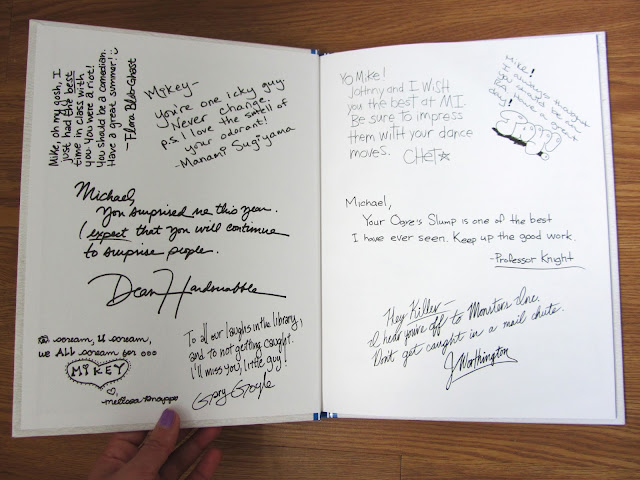 Mike, oh my gosh, I
just had the best
time in class with
you. You were a riot!
You should be a comedian.
Have a great summer!
Mikey-
you're one icky guy.
Never change.
p.s. I love the smell of
your odorant!
-Manami Sugiyama
Michael,
You surprised me this year.
I expect that you will continue
to surprise people.
Dean Hardscrabble
I scream, U scream,
we All scream for ooo
MIKEY
To all our laughs in the library,
and to not getting caught.
I'll miss you, little guy!
Gary Goyle
Yo Mike!
Johnny and I wish
you the best at MI.
Be sure to impress
them with your dance
moves.
CHET
Mike!
I always thought
day!
Michael,
Your Ogre's Slump is one of the best
I have ever seen. Keep up the good work.
-Professor Knight
Hey Killer-
I hear you're off to Monsters Inc.
Don't get caught in a mail chute.
J Worthington